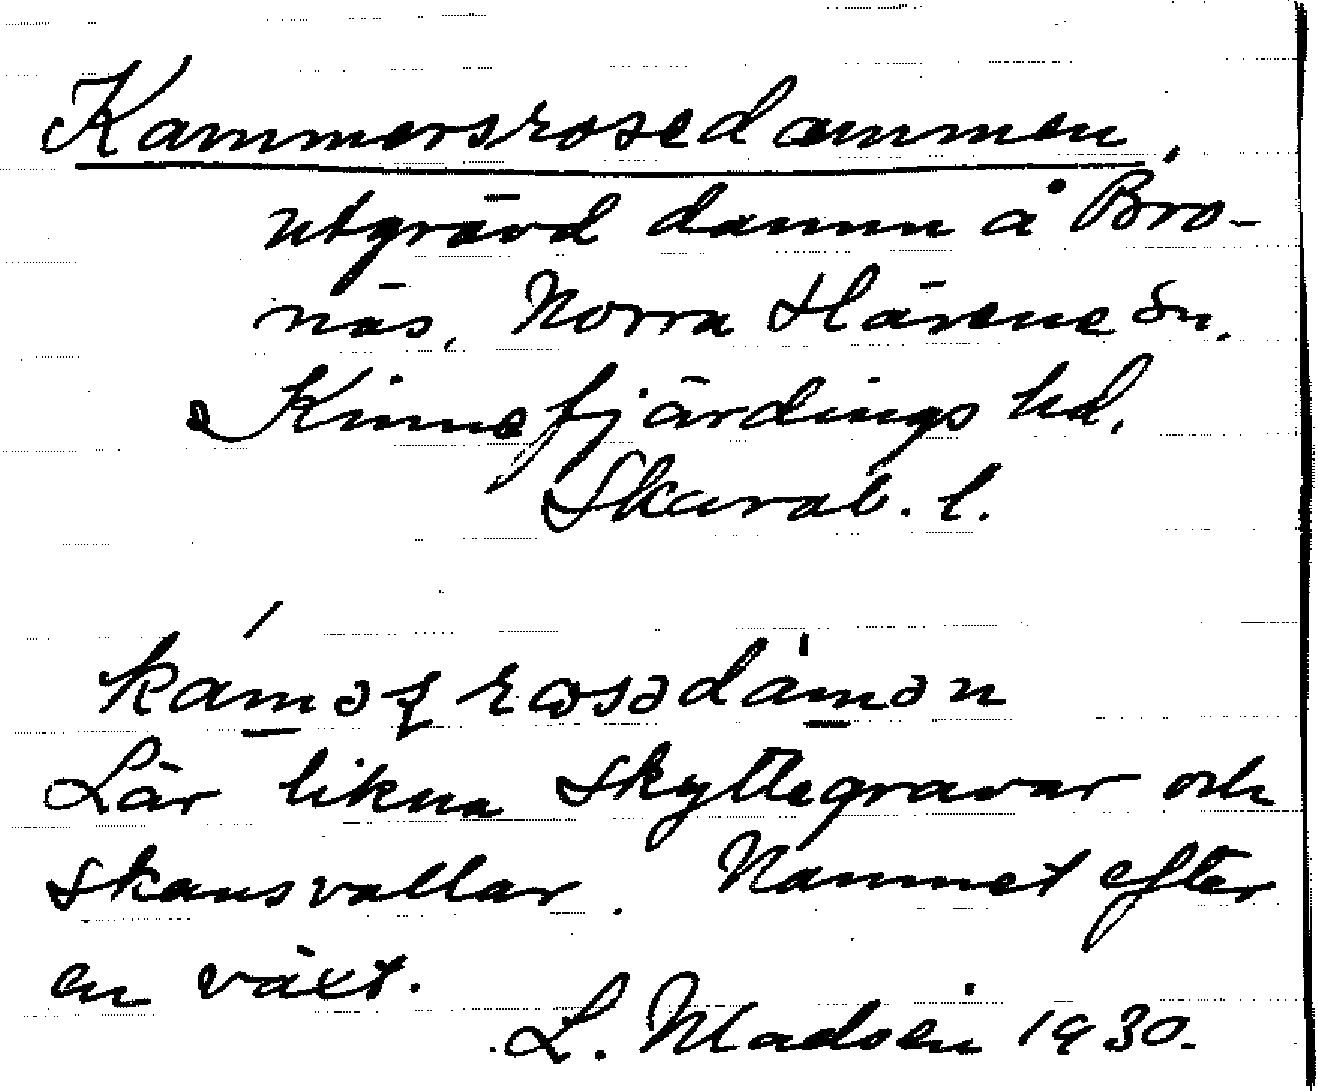 Kammersrosedammen,
utgrävd damm å Bro-
näs, Norra Härene sn.
Kinnefjärdings hd.
Skarab. l.
Lär likna skyttegravar och
skansvallar. Namnet efter
en växt.
L. Madsén 1930.